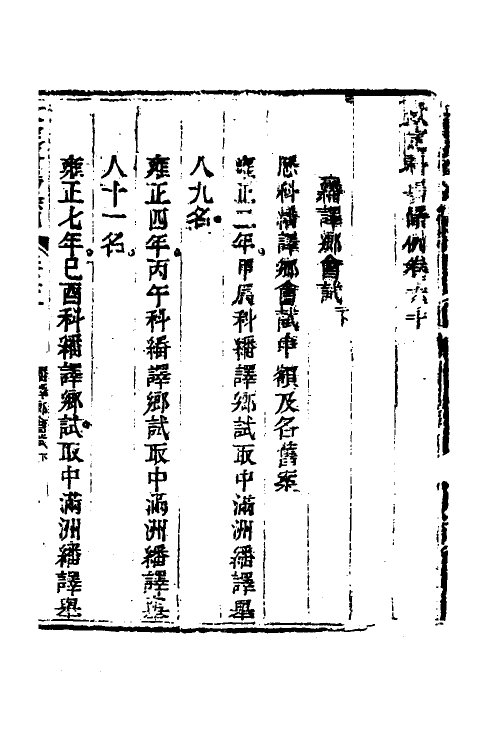 欽定科場條例卷六十
繙譯鄉會試下
歷科繙譯鄉會試中額及名舊案
雍正二年甲辰科繙譯鄉試取中滿洲繙譯舉
人九名
雍正四年丙午科繙譯鄉試取中滿洲繙譯舉
人十一名
雍正七年己酉科繙譯鄉試取中滿洲繙譯舉
繙譯鄉會試下